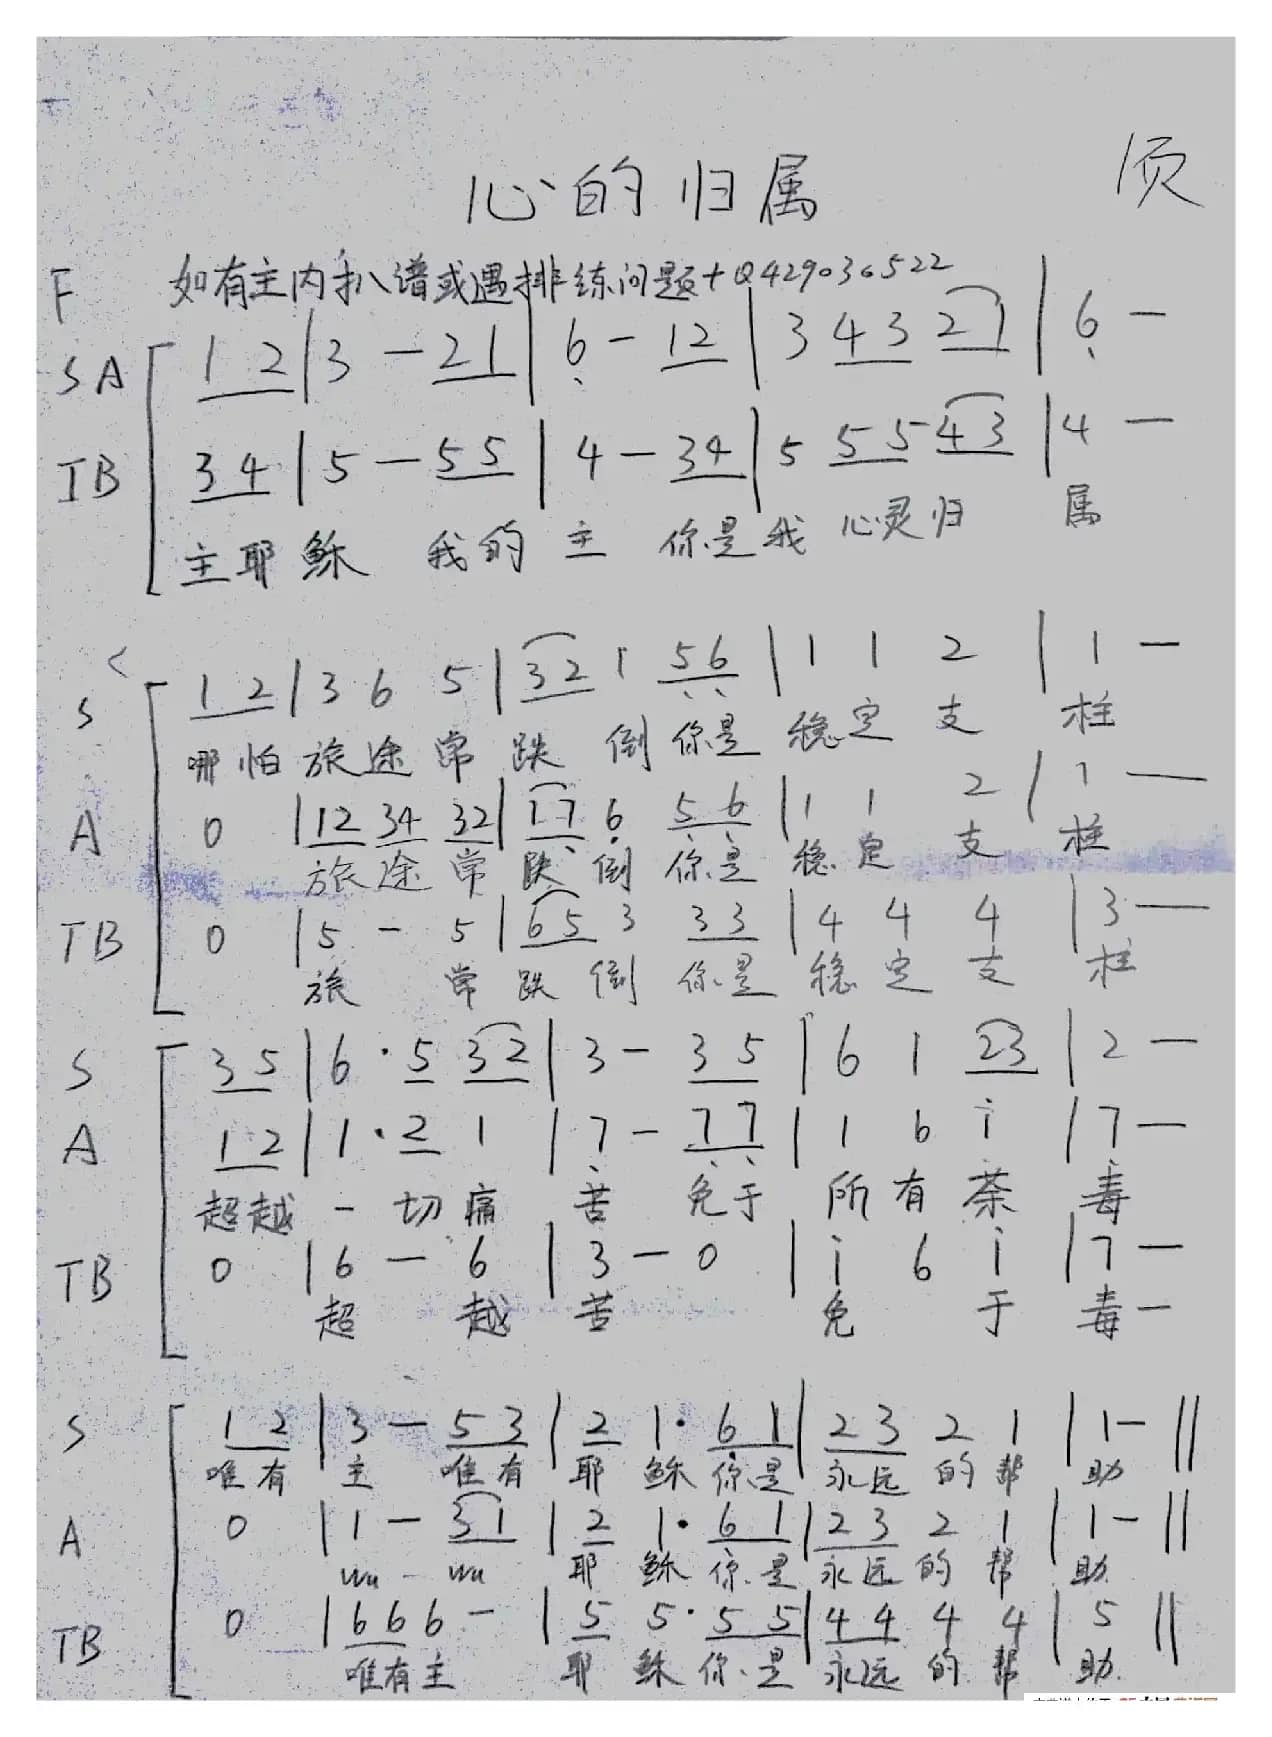 心的归属
须
F 如有主内扒谱或遇排练问题+Q429036522
SA 1 2 | 3 - 2 1 | 6 - 1 2 | 3 4 3 2 1 | 6 -
TB 3 4 | 5 - 5 5 | 4 - 3 4 | 5 5 5 4 3 | 4 -
主耶稣 我的主 你是我 心灵归 属
<
S 1 2 | 3 6 5 | 3 2 1 5 6 | 1 1 2 | 1 -
哪怕 旅途常 跌 倒 你是 稳定 支 柱
A 0 | 1 2 3 4 3 2 | 1 7 6 5 6 | 1 1 2 | 1 -
旅途常 跌 倒 你是 稳定 支 柱
TB 0 | 5 - 5 | 6 5 3 3 3 | 4 4 4 | 3 -
旅 常 跌 倒 你是 稳定 支 柱
S 3 5 | 6 · 5 3 2 | 3 - 3 5 | 6 1 2 3 | 2 -
A 1 2 | 1 · 2 1 | 7 - 7 7 | 1 6 i | 7 -
超越 一 切 痛 苦 免于 所有 荼 毒
TB 0 | 6 - 6 | 3 - 0 | i 6 i | 7 -
超 越 苦 免 于 毒 -
S 1 2 | 3 - 5 3 | 2 1 · 6 1 | 2 3 2 1 | 1 - ||
唯有 主 唯有 耶 稣 你是 永远 的 帮 助
A 0 | 1 - 3 1 | 2 1 · 6 1 | 2 3 2 1 | 1 - ||
wu wu 耶 稣 你是 永远 的 帮 助
TB 0 | 6 6 6 - | 5 5 · 5 5 | 4 4 4 4 | 5 ||
唯有主 耶 稣 你是 永远 的 帮 助